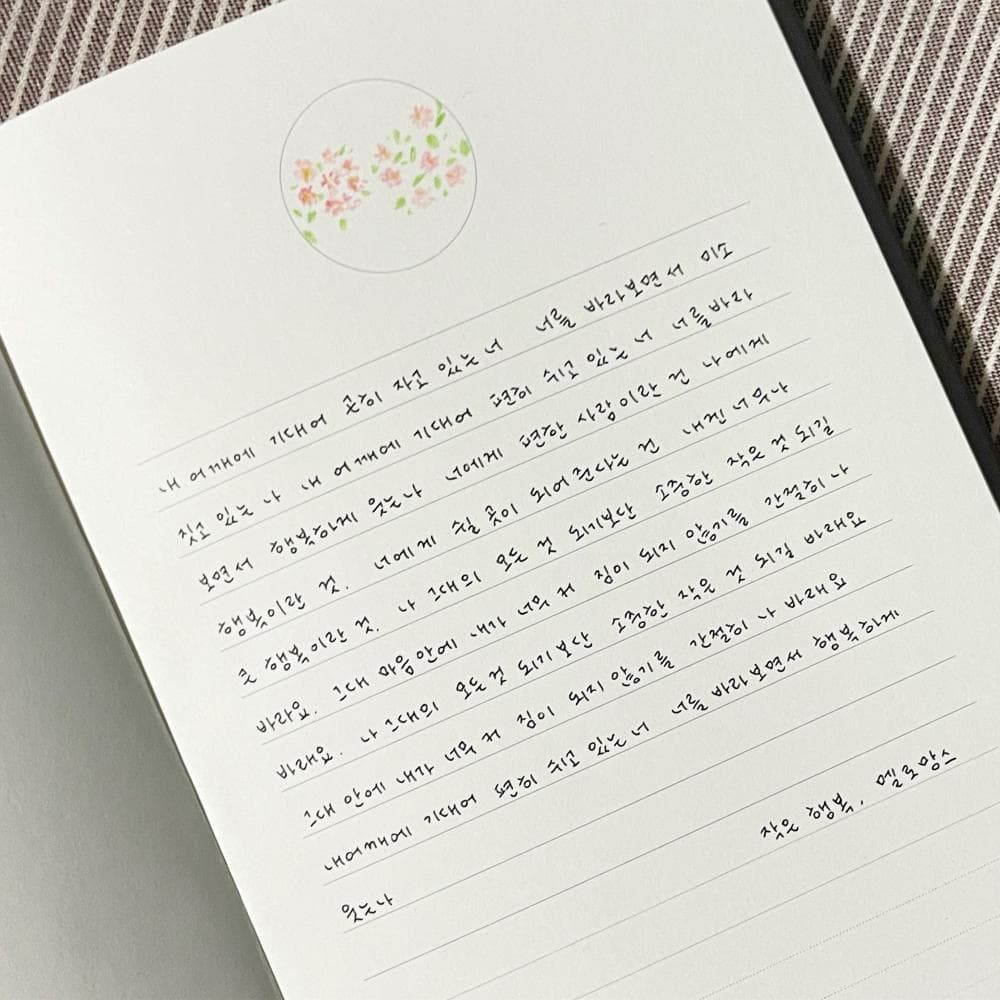 내 어깨에 기대어 곤히 자고 있는 너 너를 바라보면서 미소
짓고 있는 나 내 어깨에 기대어 편히 쉬고 있는 너 너를바라
보면서 행복하게 웃는나 너에게 편한 사람이란 건 나에게
행복이란 것. 너에게 쉴 곳이 되어준다는 건 내겐 너무나
큰 행복이란 것. 나 그대의 모든 것 되기보단 소중한 작은 것 되길
바라요. 그대 마음안에 내가 너무 커 짐이 되지 않기를 간절히 나
바래요. 나 그대의 모든것 되기보단 소중한 작은 것 되길 바래요
그대 안에 내가 너무 커 짐이 되지 않기를 간절히 나 바래요
내어깨에 기대어 편히 쉬고 있는 너 너를 바라보면서 행복하게
웃는나
작은 행복, 멜로망스